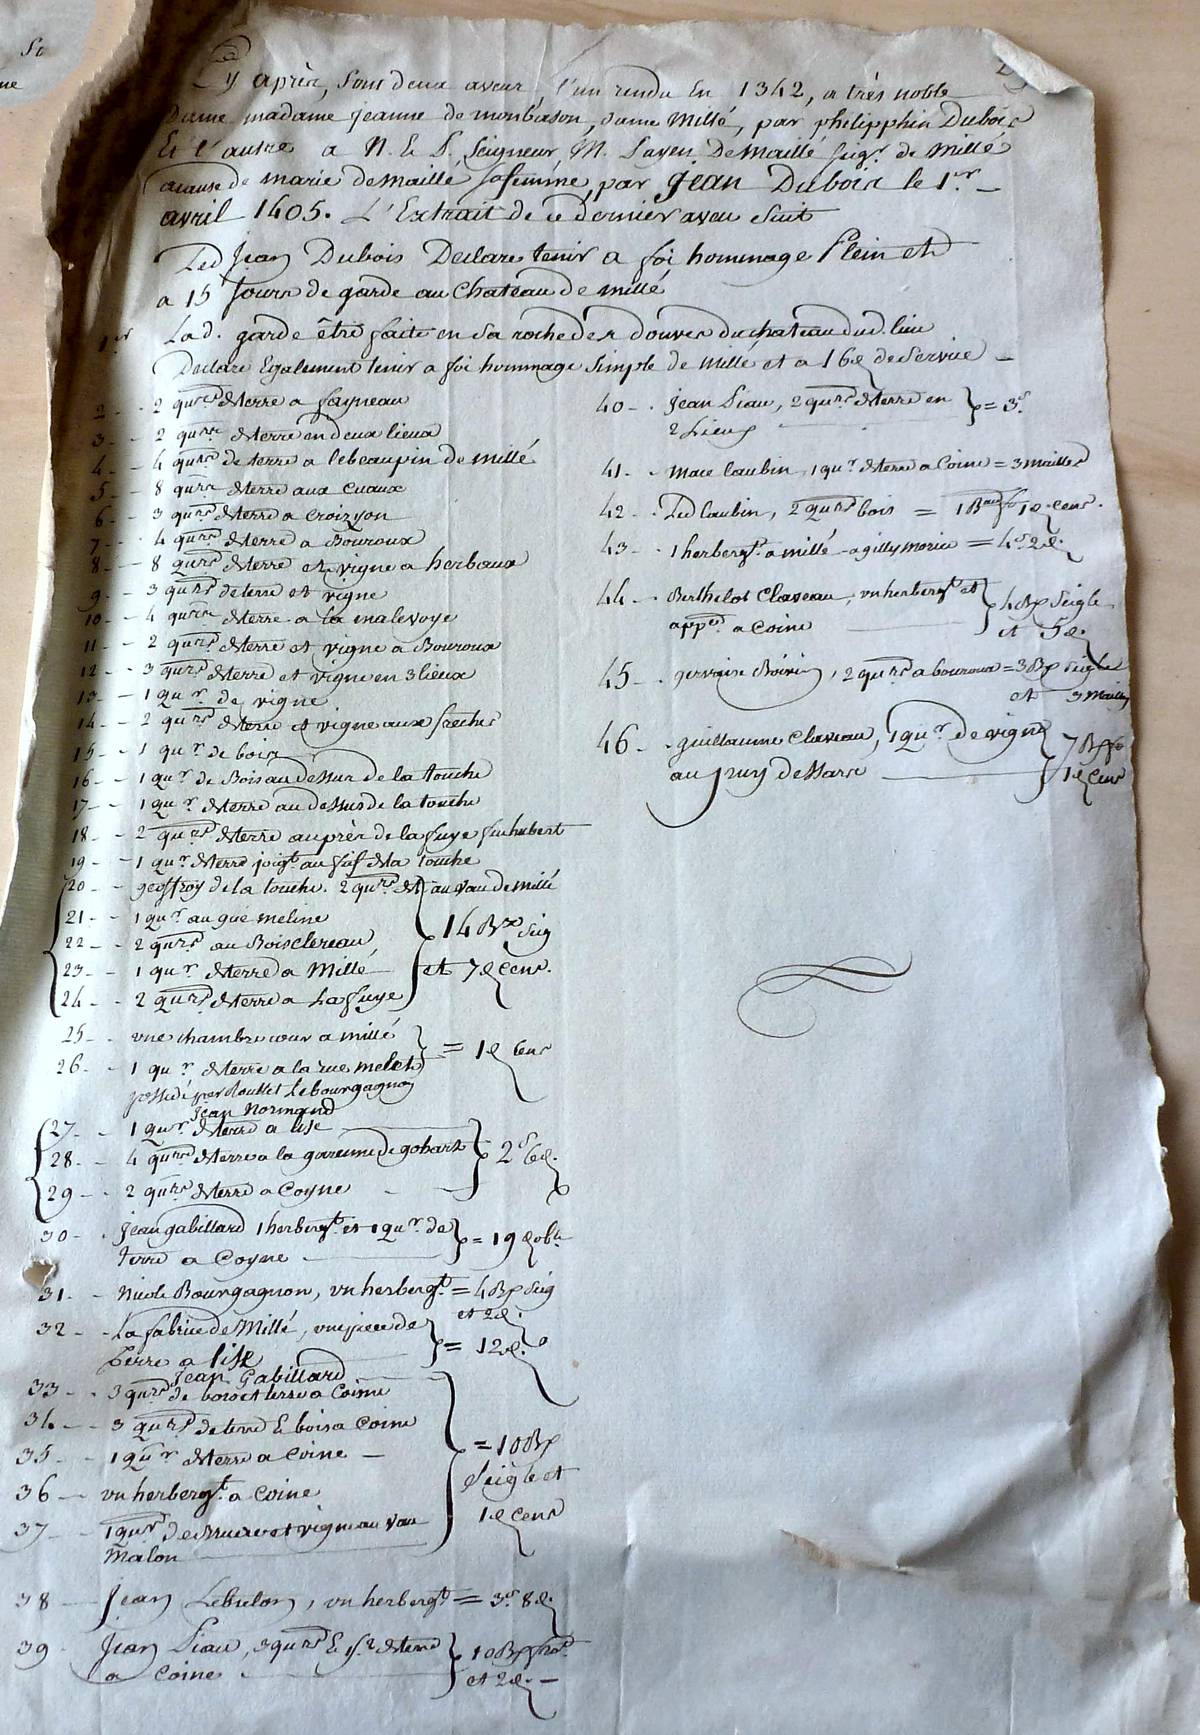 Cy après, sont deux aveux l'un rendu En 1342, a très noble
Dame madame jeanne de monbason, dame Millé, par philipphin Dubois
Et l'autre a N. & P. Seigneur, M. Payen De maillé seigr. de Millé
acause de marie de maillé sa femme, par jean Dubois le 1er.
avril 1405. L'Extrait de ce dernier aveu suit
Led. Jean Dubois Declare tenir a foi hommage Plein et
a 15 jours de garde au Chateau de millé
1er La d. garde être faite en sa roche des douves du chateau dud. lieu
Declare Egalement tenir a foi hommage simple de Millé et a 16d de Service
2 - - 2 quers de terre a fayneau
3 - - 2 quers de terre en deux lieux
4 - - 4 quers de terre a lebeaupin de millé
5 - - 8 quers de terre aux cuaux
6 - - 3 quers de terre a croizyon
7 - - 4 quers de terre a Bouroux
8 - - 8 quers de terre et vigne a herbaux
9 - - 3 quers de terre et vigne
10 - - 4 quers de terre a la malevoye
11 - - 2 quers de terre et vigne a Bouroux
12 - - 3 quers de terre et vigne en 3 lieux
13 - - 1 quer de vigne
14 - - 2 quers de terre et vigne aux freches
15 - - 1 quer de bois
16 - - 1 quer de Bois au dessus de la touche
17 - - 1 quer de terre au dessus de la touche
18 - - 2 quers de terre auprès de la fuye fuhubert
19 - - 1 quer de terre joigt. au fief de la touche
20 - - geoffroy de la touche. 2 quers de t. au vau de millé
21 - - 1 quer au gué meline
22 - - 2 quers au Boisclereau
23 - - 1 quer de terre a Millé
24 - - 2 quers de terre a La fuye
14 Bx Seig
et 7d Cens.
25 - - une chambre cour a millé
26 - - 1 quer de terre a la rue melet
= 1d Cens
possédé par Roullet Lebourgagnon
Jean Normand
27 - - 1 quer de terre a lise
28 - - 4 quers de terre a la garenne de gobart
29 - - 2 quers de terre a Coyne
2s 6d.
30 - . jean gabillard 1 herbergt et 1 quer. de
terre a Coyne
= 19 d oble
31 - - Nicole Bourgagnon, un herbergt. = 4 Bx Seig
et 2d.
32 - - La fabrice de Millé, une piece de
terre a lise
= 12d.
Jean Gabillard
33 - - 3 quers de bois et terre a Coine
34 - - 3 quers de terre & bois a Coine
35 - - 1 quer de terre a Coine -
36 - - un herbergt. a Coine
37 - - 1 quer et vigne au vau
malon
= 10 Bx
Seigle et
1d Cens
38 - Jean Lebrelon, un herbergt = 3s. 8d.
39 - Jean Piau, 3 quers & de terre
a Coine
10 Bx
et 2d. -
40 - . Jean Piau, 2 quers de terre en
2 Lieux
= 3s.
41 - - mace Caubin 1 quer. de terre a Coine = 3 mailles
42 - . Led Caubin, 2 quers bois = 1 1d. cens.
43 - . 1 herbergt. a millé - a gilly morice = 4s. 2d.
44 - - Berthelot Claveau, un herbergt et
appces. a Coine
4 Bx Seigle
et 5d.
45 - . gervaise Boivin, 2 quers a bouroux = 3 Bx Seigle
et 3 mailles
46 - - guillaume Claveau, 1 quer. de vigne
au puy dessarre
7 Bx
1d Cens